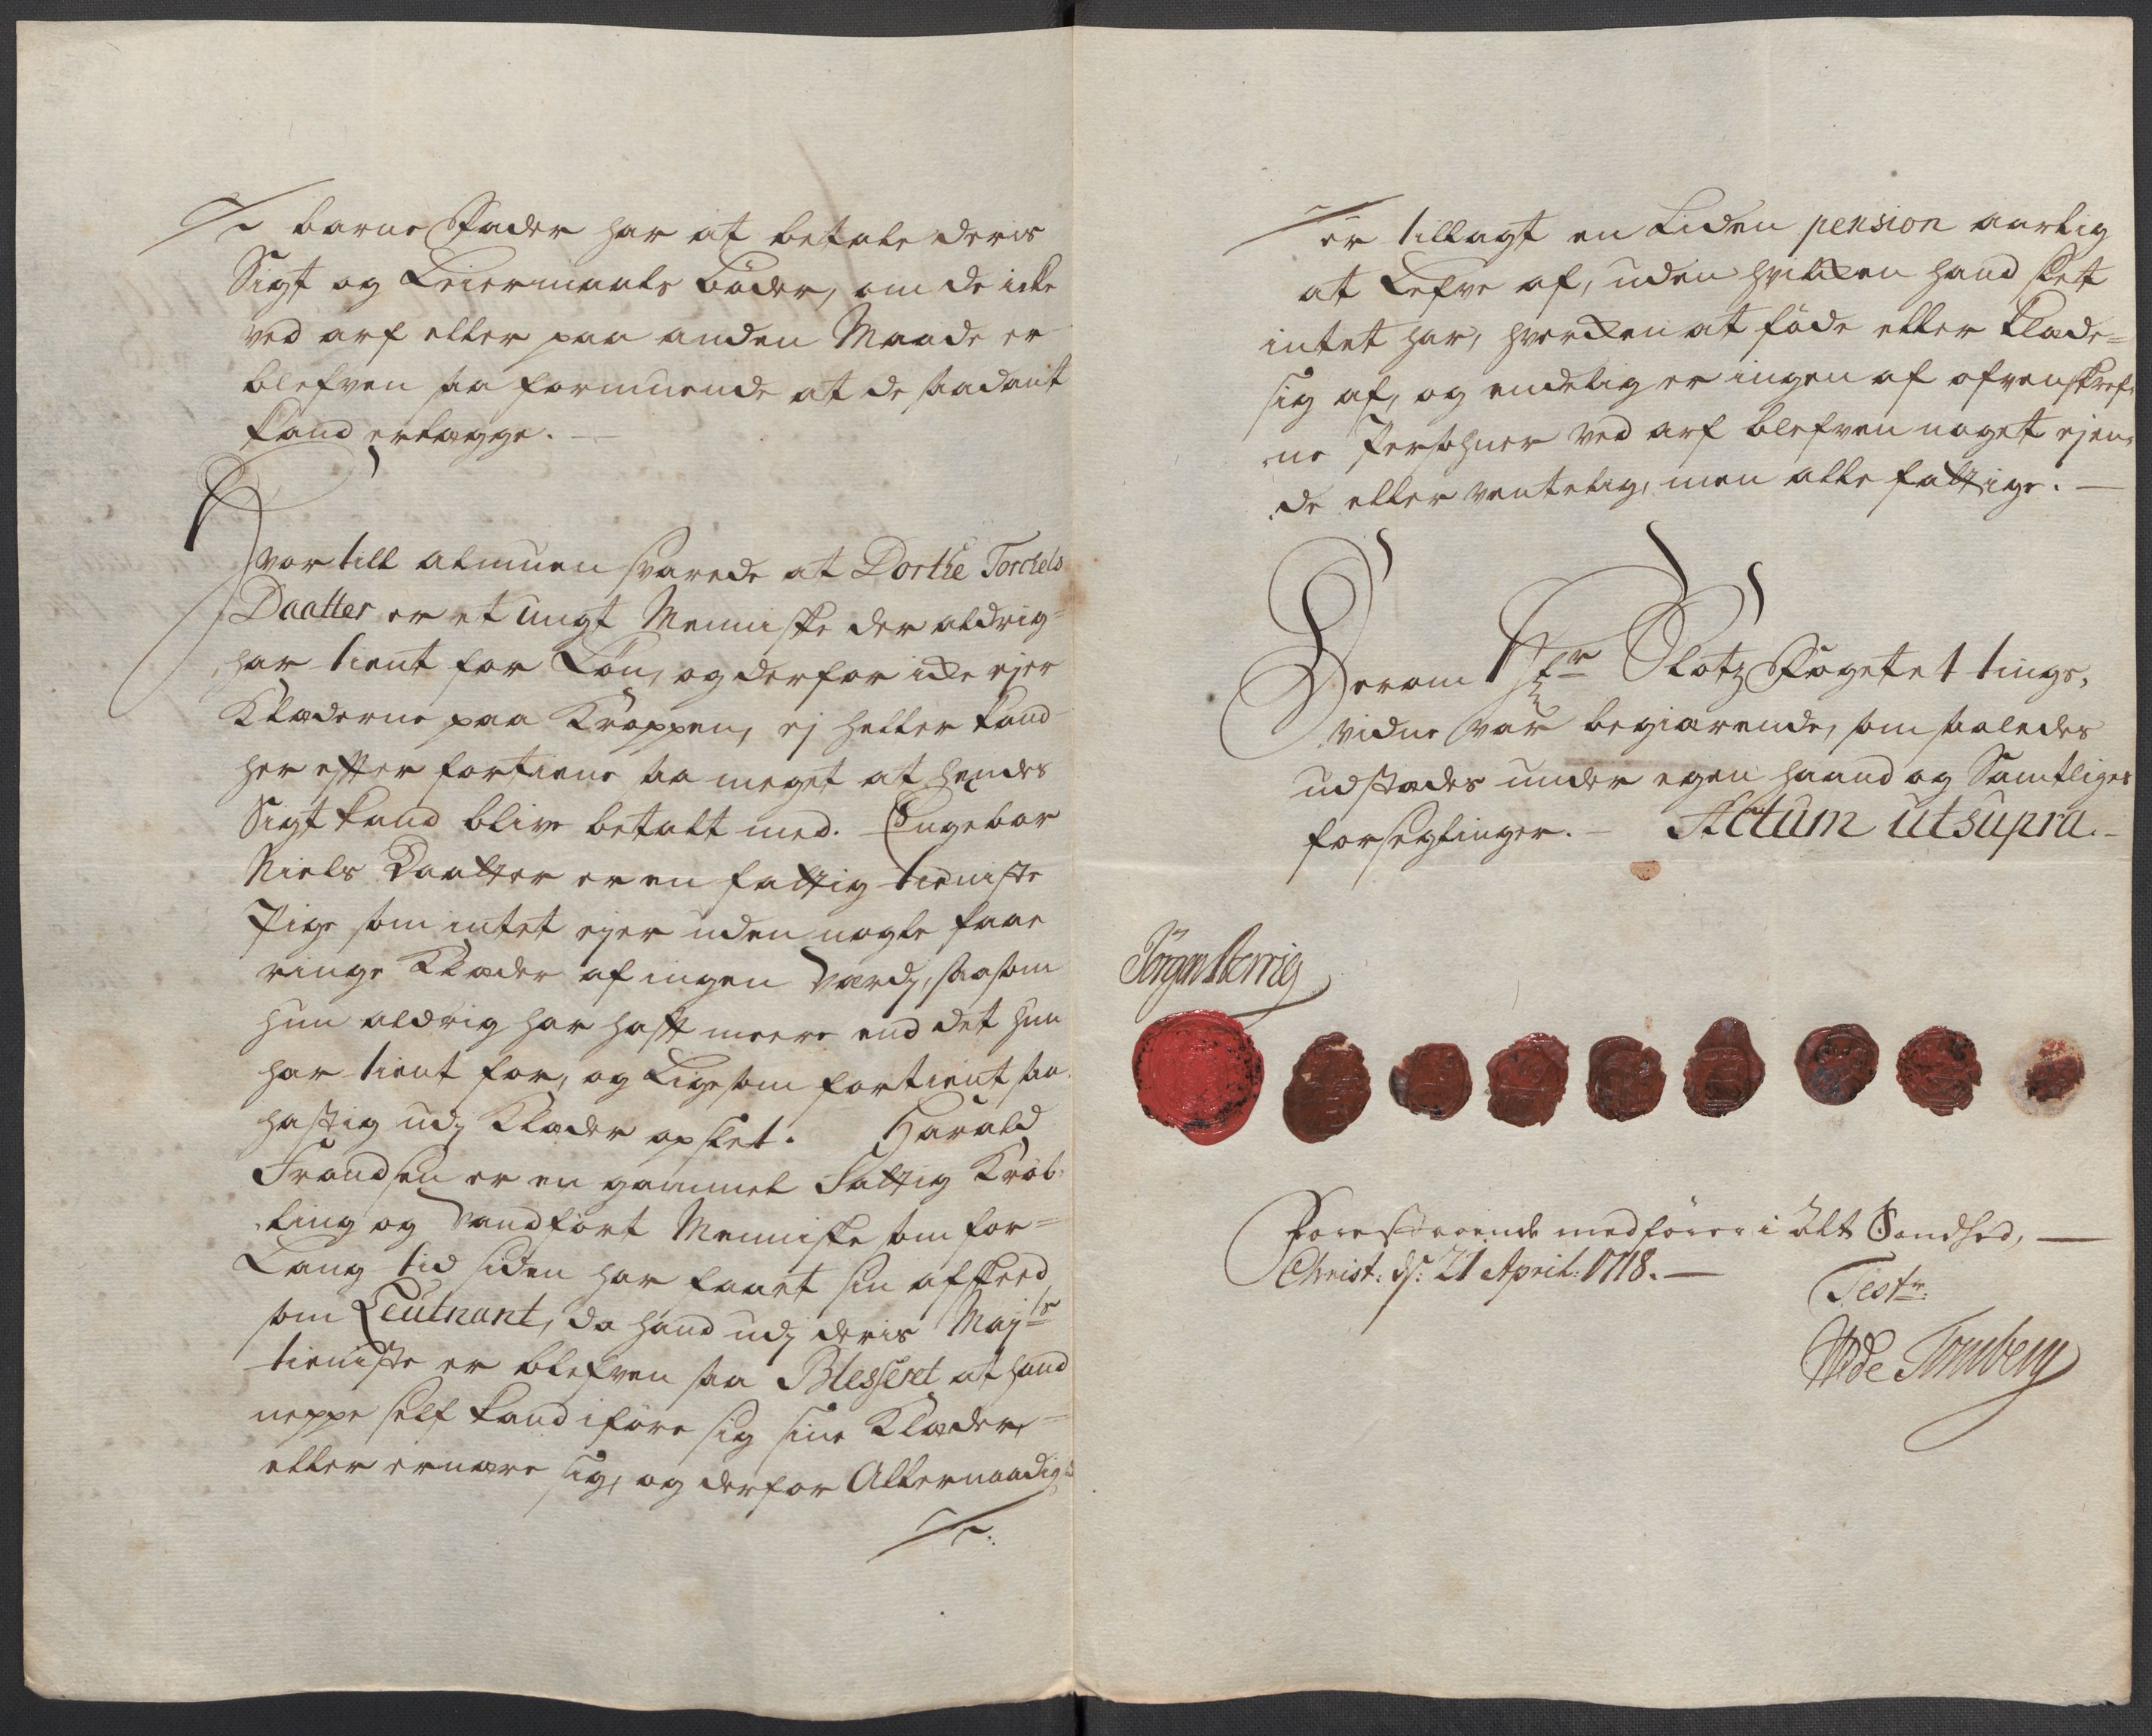 barne Fader har at betale deris
Sigt og Leiermaals bøder, om de icke
ved arf eller paa anden Maade er
blefven saa formuende at de saadant
kand erlægge.
Hvor till almuen svarede at Dorthe Torchels
Daatter er et ungt Menniske der aldrig
har tient for Løn, og derfor icke ejer
Klæderne paa Kroppen, ej heller kand
her efter fortiene saa meget at hendes
Sigt kand blive betalt med. Engebor
Niels Daatter er en fattig tieniste
Pige som intet ejer uden nogle faae
ringe Klæder af ingen Værdj, saasom
hun aldrig har haft meere end det hun
har tient for, og Ligesom fortient saa
hastig udj Klæder opslet. Harald
Frandsen er en gammel Fattig Krøb-
ling og Vandført Menniske som for
Lang tid siden har faaet sin afskeed
som Leutnant, da hand udj deris Maj:ts
tieniste er blefven saa Blesseret at hand
neppe self kand iføre sig sine Klæder
eller ernære sig, og derfor Allernaadigst
er tillagt en Liden pension aarlig
at Lefve af, uden hvilken hand slet
intet har, hverken at føde eller klæde
sig af, og endelig er ingen af ofvenskref-
ne Persohner ved arf blefven noget ejen-
de eller ventelig, men alle fattige.
Herom Hr Slotz Fogeten et tings-
vidne var begiærende, som saaledes
udstædes under egen haand og Samtliges
forseglinger. Actum ut supra.
Jørgen
Forestaaende medfører i alt Sandhed,
Christ: ds: 21 April: 1718.
Test: